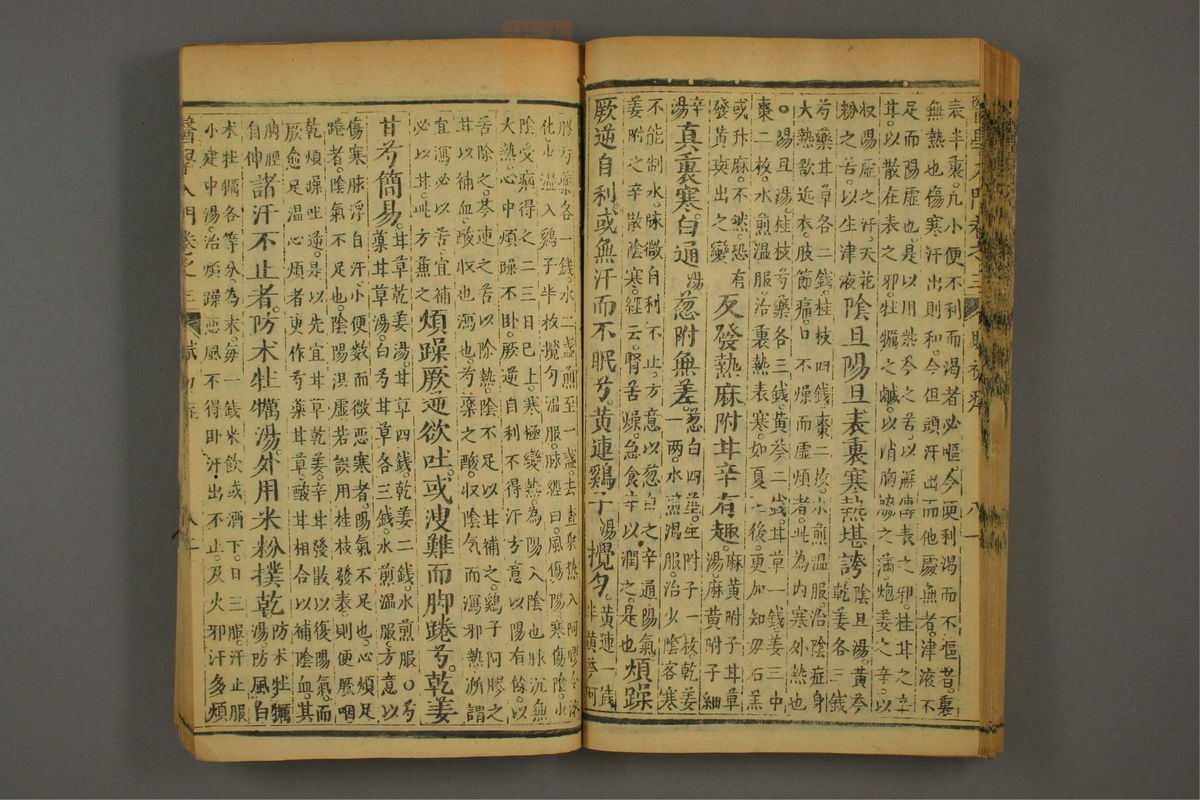 表半裏。凡小便不利而渴者必嘔今便利渴而不嘔者裏
無熱也傷寒汗出則和今但頭汗出而他處無者津液不
足而陽虛也是以用柴芩之苦以解傳表之邪桂甘之辛
耳以散在表之邪牡蠣之鹹以消胸脇之滿炮姜之辛以
收陽虛之汗天花
粉之苦以生津液
陰旦陽旦表裏寒熱堪誇
陰旦湯黃芩
乾姜各三錢
芍藥甘草各二錢桂枝四錢棗二枚水煎溫服治陰症身
大熱欲近衣肢節痛口不燥而虛煩者此為內寒外熱也
○陽旦湯桂枝芍藥各三錢黃芩二錢甘草一錢姜三中
棗二枚水煎溫服治裏熱表寒如夏至後更加知母石羔
或升麻不然恐有
發黃斑出之變
反發熱麻附甘辛有趣
麻黃附子甘草
湯麻黃附子細
辛
湯
真裏寒。白通湯葱附無差。
葱白四莖生附子一枚乾姜
一兩水煎溫服治少陰客寒
不能制水。脉微自利不止。方意以葱白之辛通陽氣
姜附之辛散陰寒。經云。腎苦燥。急食辛以潤之。是也
煩躁
厥逆自利。或無汗而不眠兮。黃連鷄子湯攪勻。
黃連一錢
半黃芩阿
膠芍藥各一錢水二盞煎至一盞。去查乘熱入阿膠令
化少溫入鷄子半枚攪勻溫服。脉經曰。風傷陽寒傷陰。少
陰受病得之二三日已上。寒極變熱為陽入陰也脉沉無
大熱心中煩躁不卧。厥逆自利不得汗方意以陽有餘。以
苦除之。芩連之苦以除熱。陰不足以甘補之。鷄子阿膠之
甘以補血。酸收也瀉也。芍藥之酸收陰氣而瀉邪熱所謂
宜瀉必以苦。宜補
必以甘。此方兼之
煩躁厥逆欲吐。或溲難而脚踡兮。乾姜
甘芍簡易。
甘草乾姜湯。甘草四錢。乾姜二錢。水煎服○芍
藥甘草湯。白芍甘草各三錢水煎溫服。方意以
傷寒脉浮自汗。小便數而微惡寒者。陽氣不足也。心煩足
踡者。陰氣不足也。陰陽俱虛若誤用桂枝發表則便厥咽
乾煩躁吐逆。是以先宜甘草乾姜。辛甘發散以復陽氣而
厥愈足溫心煩者更作芍藥甘草。酸甘相合以補陰血。其
脚脛
自伸
諸汗不止者。防术牡蠣湯。外用米粉撲乾
防术牡蠣
湯防風白
术牡蠣各等分為末。每一錢米飲或酒下。日三服汗止服
小建中湯。治煩躁惡風不得卧汗出不止。及火邪汗多煩
醫學入門卷之三